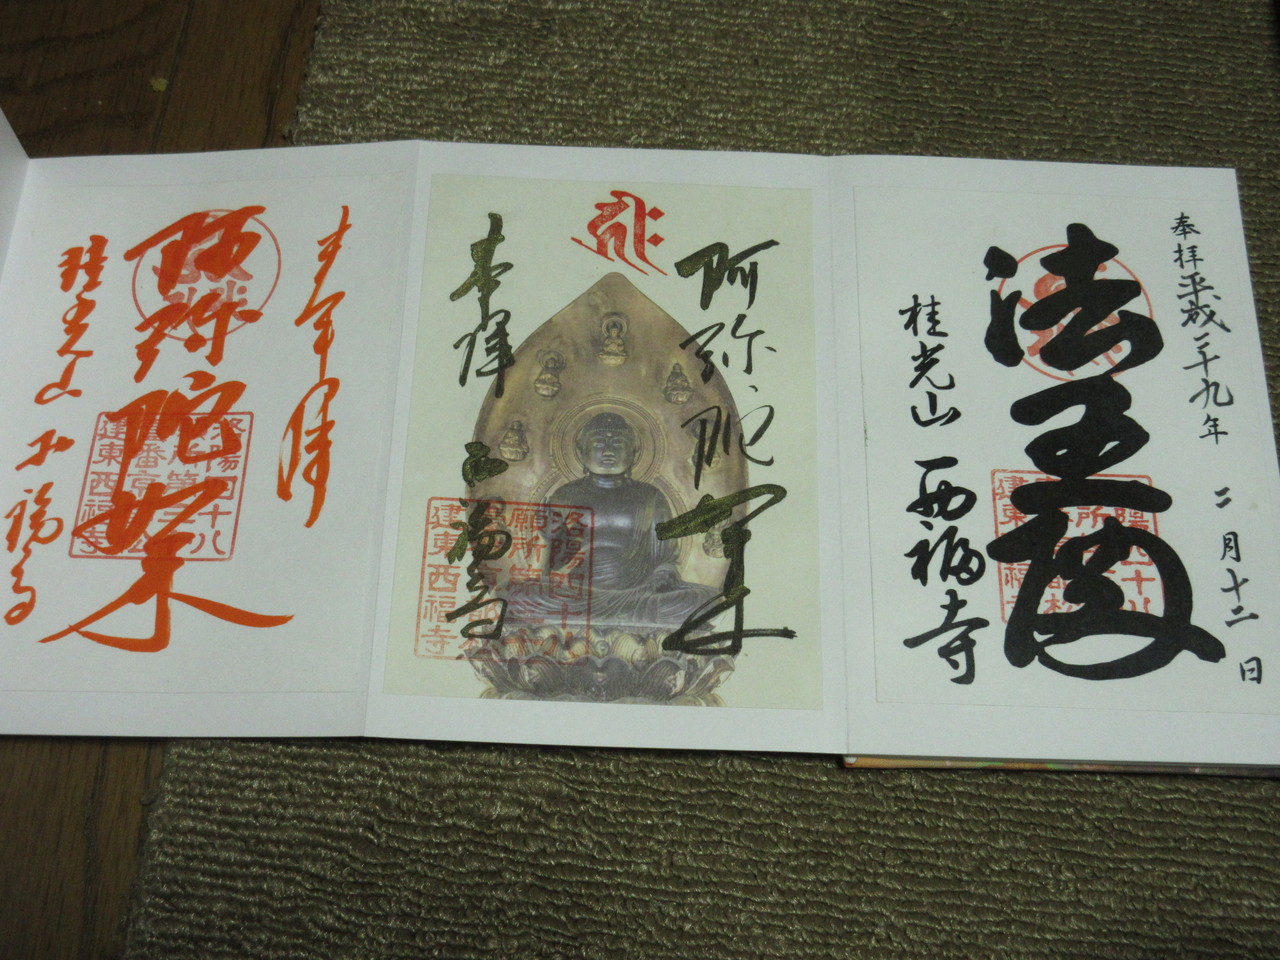 奉拝 平成二十九年 二月十二日
法王殿
桂光山 西福寺
阿弥陀如来
奉拝 西福寺
洛陽四十八
願所第
建東西福寺
奉拝
阿弥陀如来
桂光山 西福寺
洛陽四十八
建東西福寺